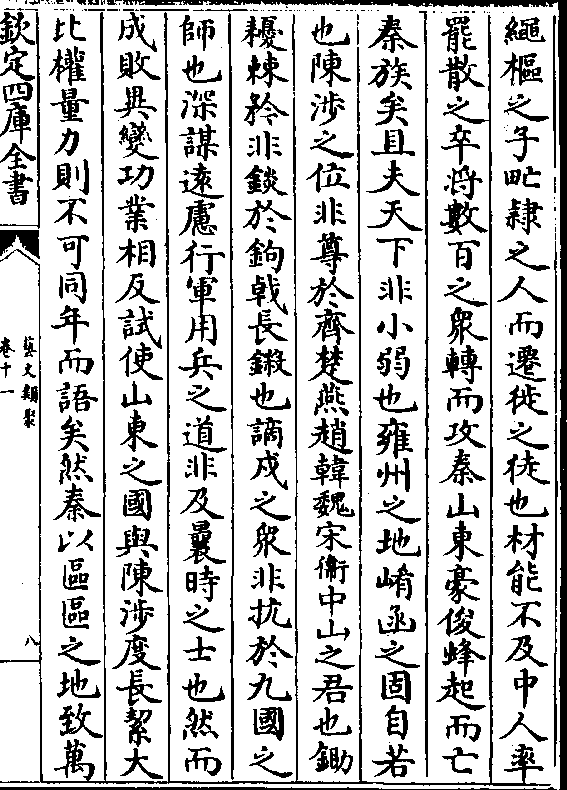 繩樞之子甿隷之人而遷徙之徒也材能不及中人率
罷散之卒將數百之衆轉而攻秦山東豪俊蜂起而亡
秦族矣且夫天下非小弱也雍州之地崤函之固自若
也陳涉之位非尊於齊楚燕趙韓魏宋衞中山之君也鋤
耰棘矜非錟於鉤㦸長鎩也謫戍之衆非抗於九國之
師也深謀遠慮行軍用兵之道非及曩時之士也然而
成敗異變功業相反試使山東之國與陳涉度長絜大
比權量力則不可同年而語矣然秦以區區之地致萬
欽定四庫全書
藝文類聚
卷十一
八